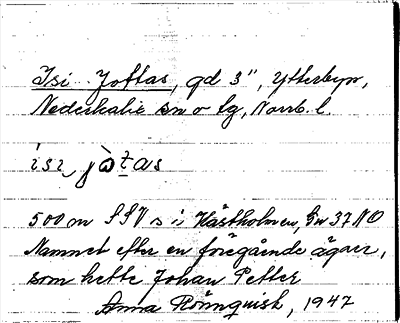 Isi Joftas, gd 3", Ytterbyn,
Nederkalix sn o tg, Norrb. l.
500 m SSV s i Hästholmen, Gu 37 NO
Namnet efter en föregående ägare,
som hette Johan Petter
Anna Rönnqvist, 1947